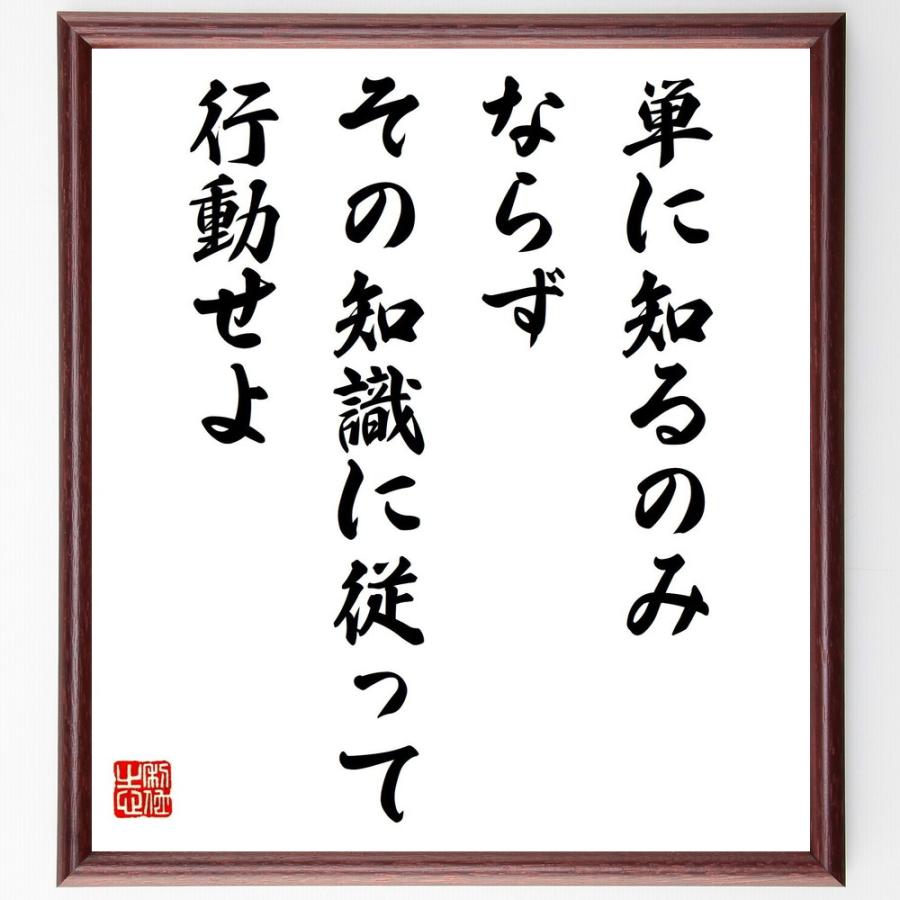 単に知るのみ
ならず
その知識に従って
行動せよ